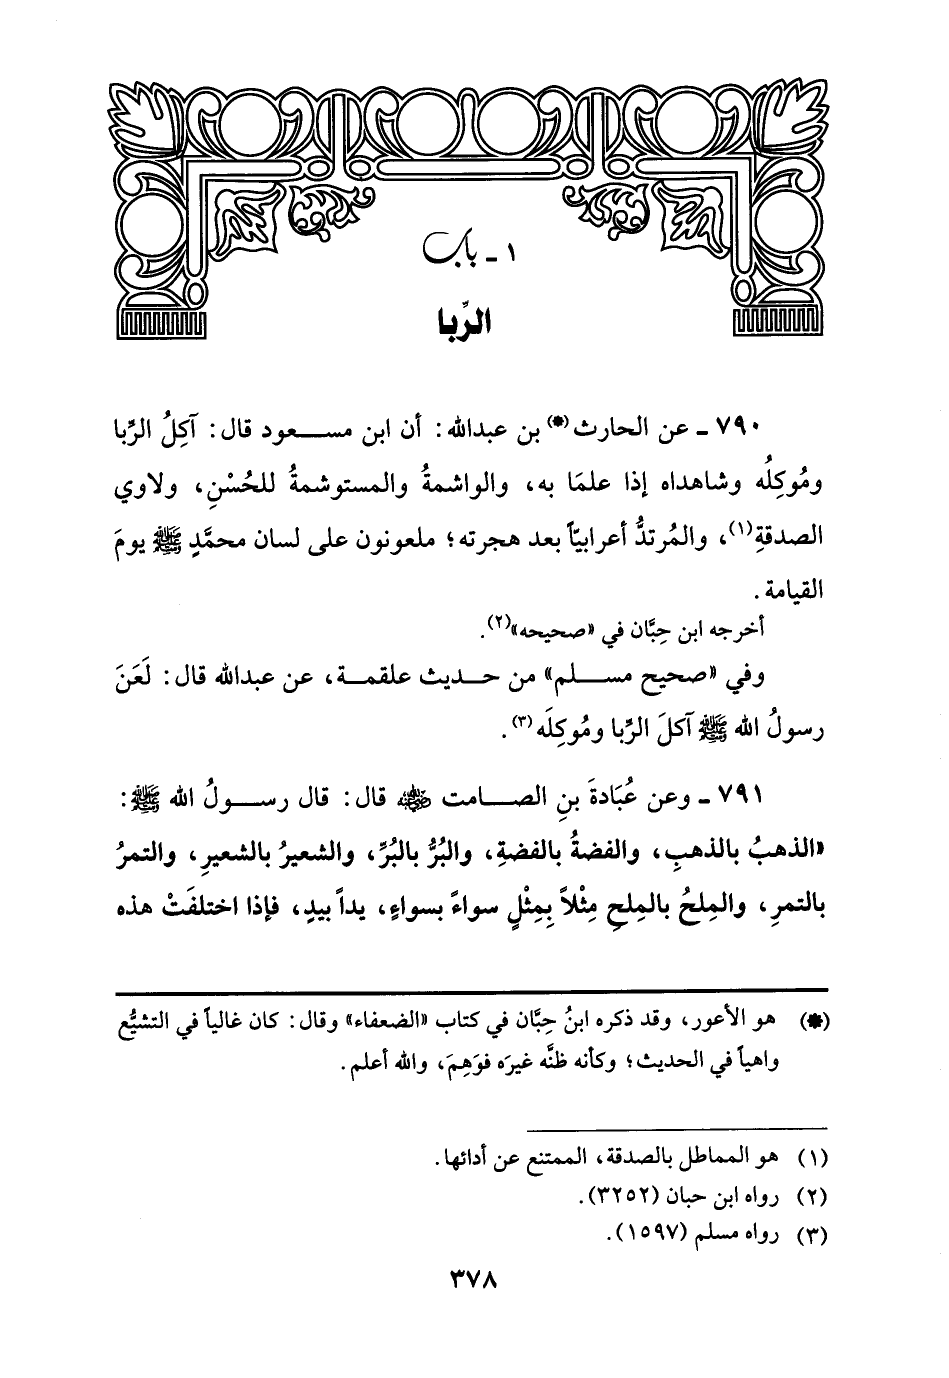 ١ - باب
الرِّبا
٧٩٠ - عن الحارث(*) بن عبدالله: أن ابن مسعود قال: آكِلُ الرِّبا
ومُوكِلُه وشاهداه إذا علمَا به، والواشمةُ والمستوشمةُ للحُسْنِ، ولاوي
الصدقةِ(١)، والمُرتدُّ أعرابيّاً بعد هجرته؛ ملعونون على لسان محمَّدٍ ﷺ يومَ
القيامة.
أخرجه ابن حِبَّان في «صحيحه»(٢).
وفي «صحيح مسلم» من حديث علقمة، عن عبدالله قال: لَعَنَ
رسولُ الله ﷺ آكلَ الرِّبا ومُوكِلَه(٣).
٧٩١ - وعن عُبَادةَ بنِ الصامت رضي الله عنه قال: قال رسولُ الله ﷺ:
«الذهبُ بالذهبِ، والفضةُ بالفضةِ، والبُرُّ بالبُرِّ، والشعيرُ بالشعيرِ، والتمرُ
بالتمرِ، والمِلحُ بالمِلحِ مِثْلاً بِمِثْلٍ سواءً بسواءٍ، يداً بيدٍ، فإذا اختلفَتْ هذه
(*) هو الأعور، وقد ذكره ابنُ حِبَّان في كتاب «الضعفاء» وقال: كان غالياً في التشيُّع
واهياً في الحديث؛ وكأنه ظنَّه غيرَه فوَهِمَ، والله أعلم.
(١) هو المماطل بالصدقة، الممتنع عن أدائها.
(٢) رواه ابن حبان (٣٢٥٢).
(٣) رواه مسلم (١٥٩٧).
٣٧٨